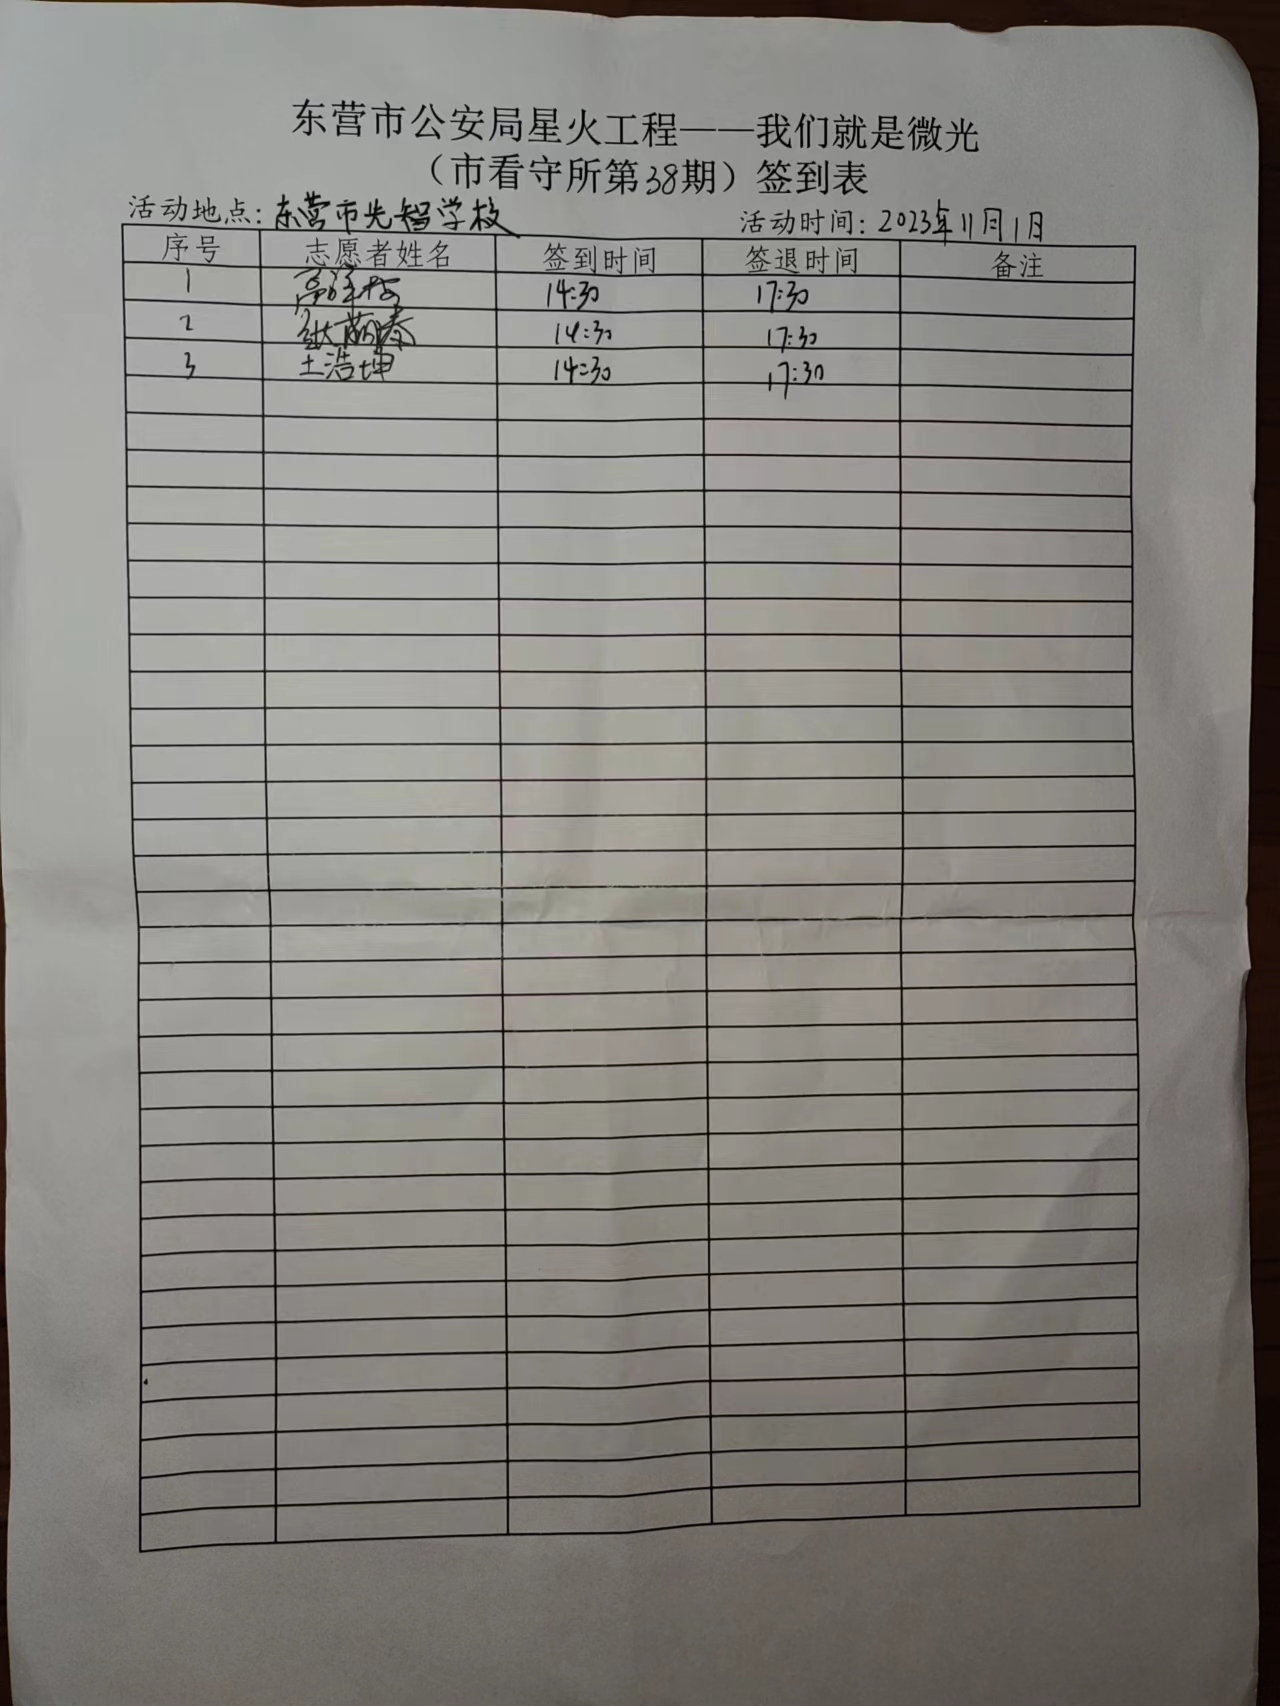 东营市公安局星火工程——我们就是微光
（市看守所第38期）签到表
活动地点：东营市先智学校 活动时间：2023年11月1日
序号 志愿者姓名 签到时间 签退时间 备注
1 高 14:30 17:30
2 张萌春 14:30 17:30
3 王浩坤 14:30 17:30